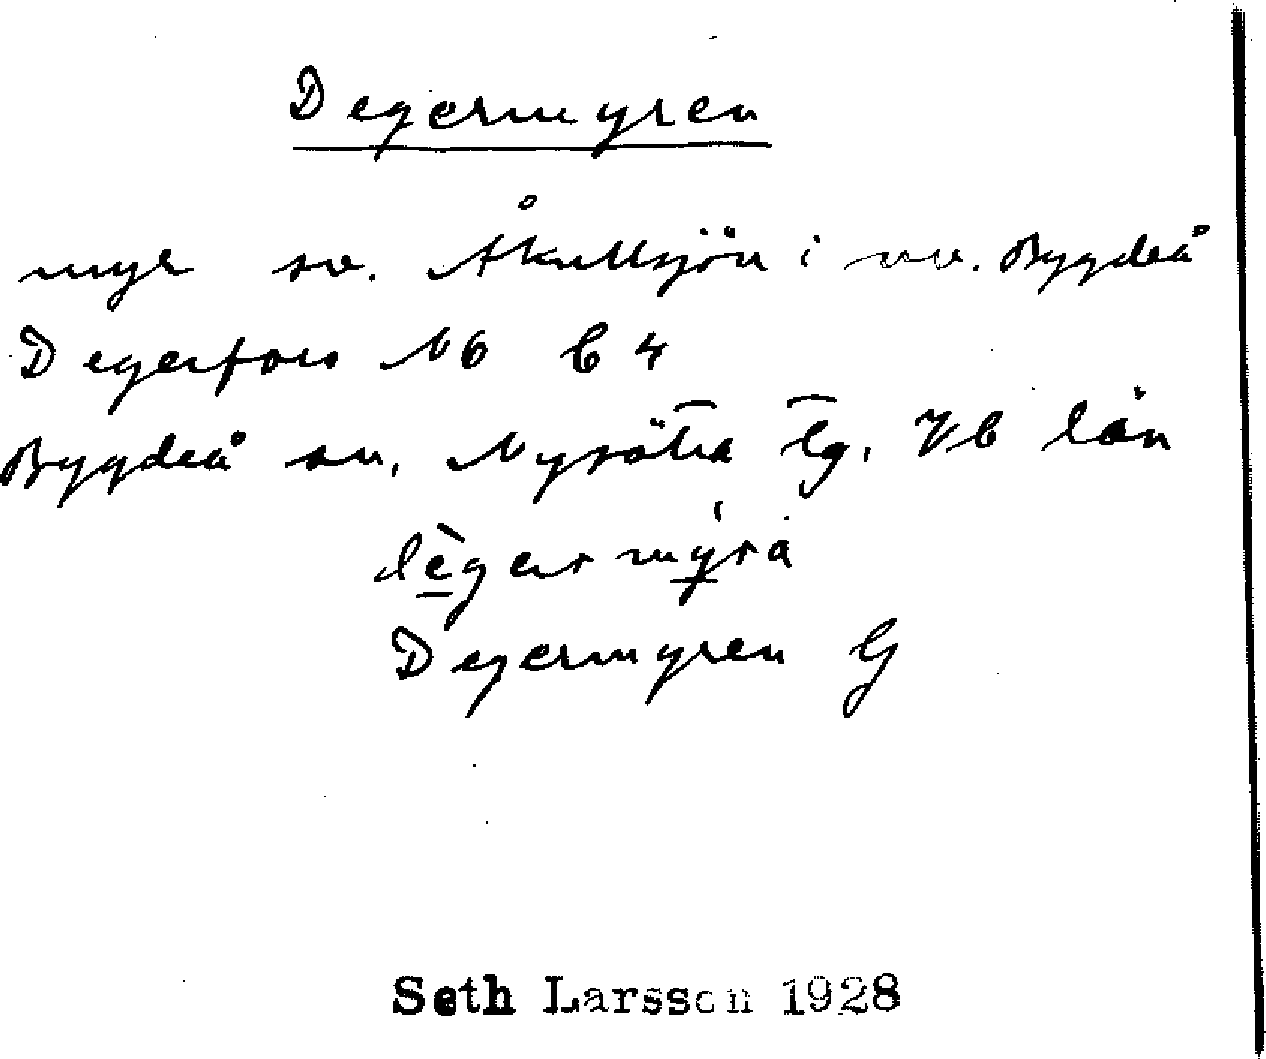 Degermyren
myr sv. Åkullsjön i nv. Bygdeå
Degerfors NO b 4
Bygdeå sn, Nysätra tg, Vb län
dègermýra
Degermyren G
Seth Larsson 1928